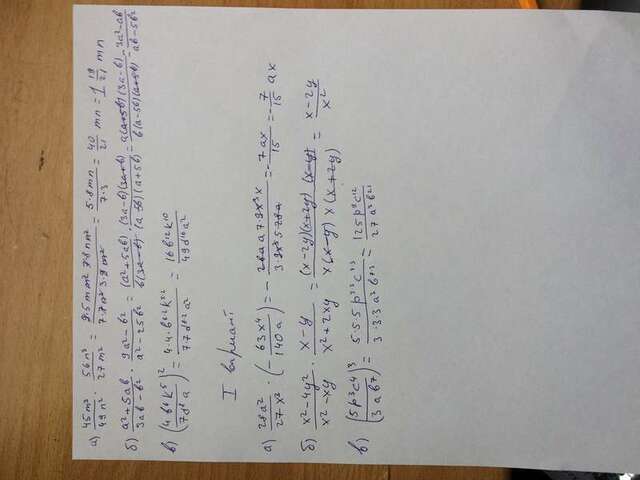 а) 45m³/49n² · 56n³/27m² = 9·5mm² 7·8nn²/7·7n² 3·9m² = 5·8mn/7·3 = 40/21 mn = 1 19/21 mn
б) a²+5ab/3ab-b² · 9a²-b²/a²-25b² = (a²+5ab)/b(3a-b) · (3a-b)(3a+b)/(a-5b)(a+5b) = a(a+5b)(3a-b)/b(a-5b)(a+5b) = 3a²-ab/ab-5b²
в) (4b⁶k⁵/7d⁸a)² = 4·4·b⁶·²k⁵·²/7·7d⁸·²a² = 16b¹²k¹⁰/49d¹⁶a²
I вариант
а) 28a²/27x³ · (-63x⁴/140a) = - 28aa7·9x³x/3·9x³528a = -7ax/15 = -7/15 ax
б) x²-4y²/x²-xy · x-y/x²+2xy = (x-2y)(x+2y) (x-y)/x(x-y) x(x+2y) = x-2y/x²
в) (5p³c⁴/3ab⁷)³ = 5·5·5p³·³c⁴·³/3·3·3a³b⁷·³ = 125p⁹c¹²/27a³b²¹